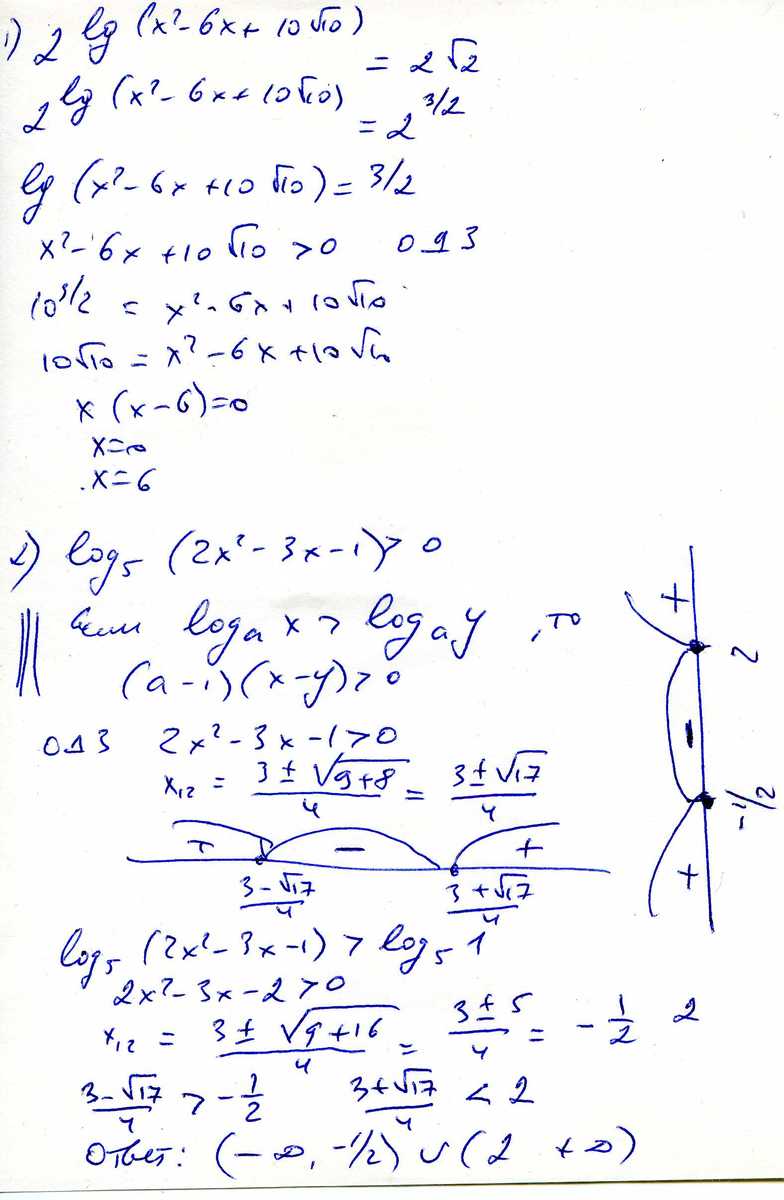 1) 2^lg (x²-6x+10√10) = 2√2
2^lg (x²-6x+10√10) = 2^3/2
lg (x²-6x+10√10) = 3/2
x²-6x+10√10 > 0 ОДЗ
10^3/2 = x²-6x+10√10
10√10 = x²-6x+10√10
x (x-6)=0
x=0
x=6
2) log₅ (2x²-3x-1) > 0
Если logₐ x > logₐ y, то
(a-1)(x-y)>0
ОДЗ 2x²-3x-1>0
x₁₂ = (3 ± √(9+8))/4 = (3 ± √17)/4
+ - +
(3-√17)/4 (3+√17)/4
+ 2 - -1/2 +
log₅ (2x²-3x-1) > log₅ 1
2x²-3x-2>0
x₁₂ = (3 ± √(9+16))/4 = (3 ± 5)/4 = -1/2 2
(3-√17)/4 > -1/2 (3+√17)/4 < 2
Ответ: (-∞, -1/2) ∪ (2 +∞)